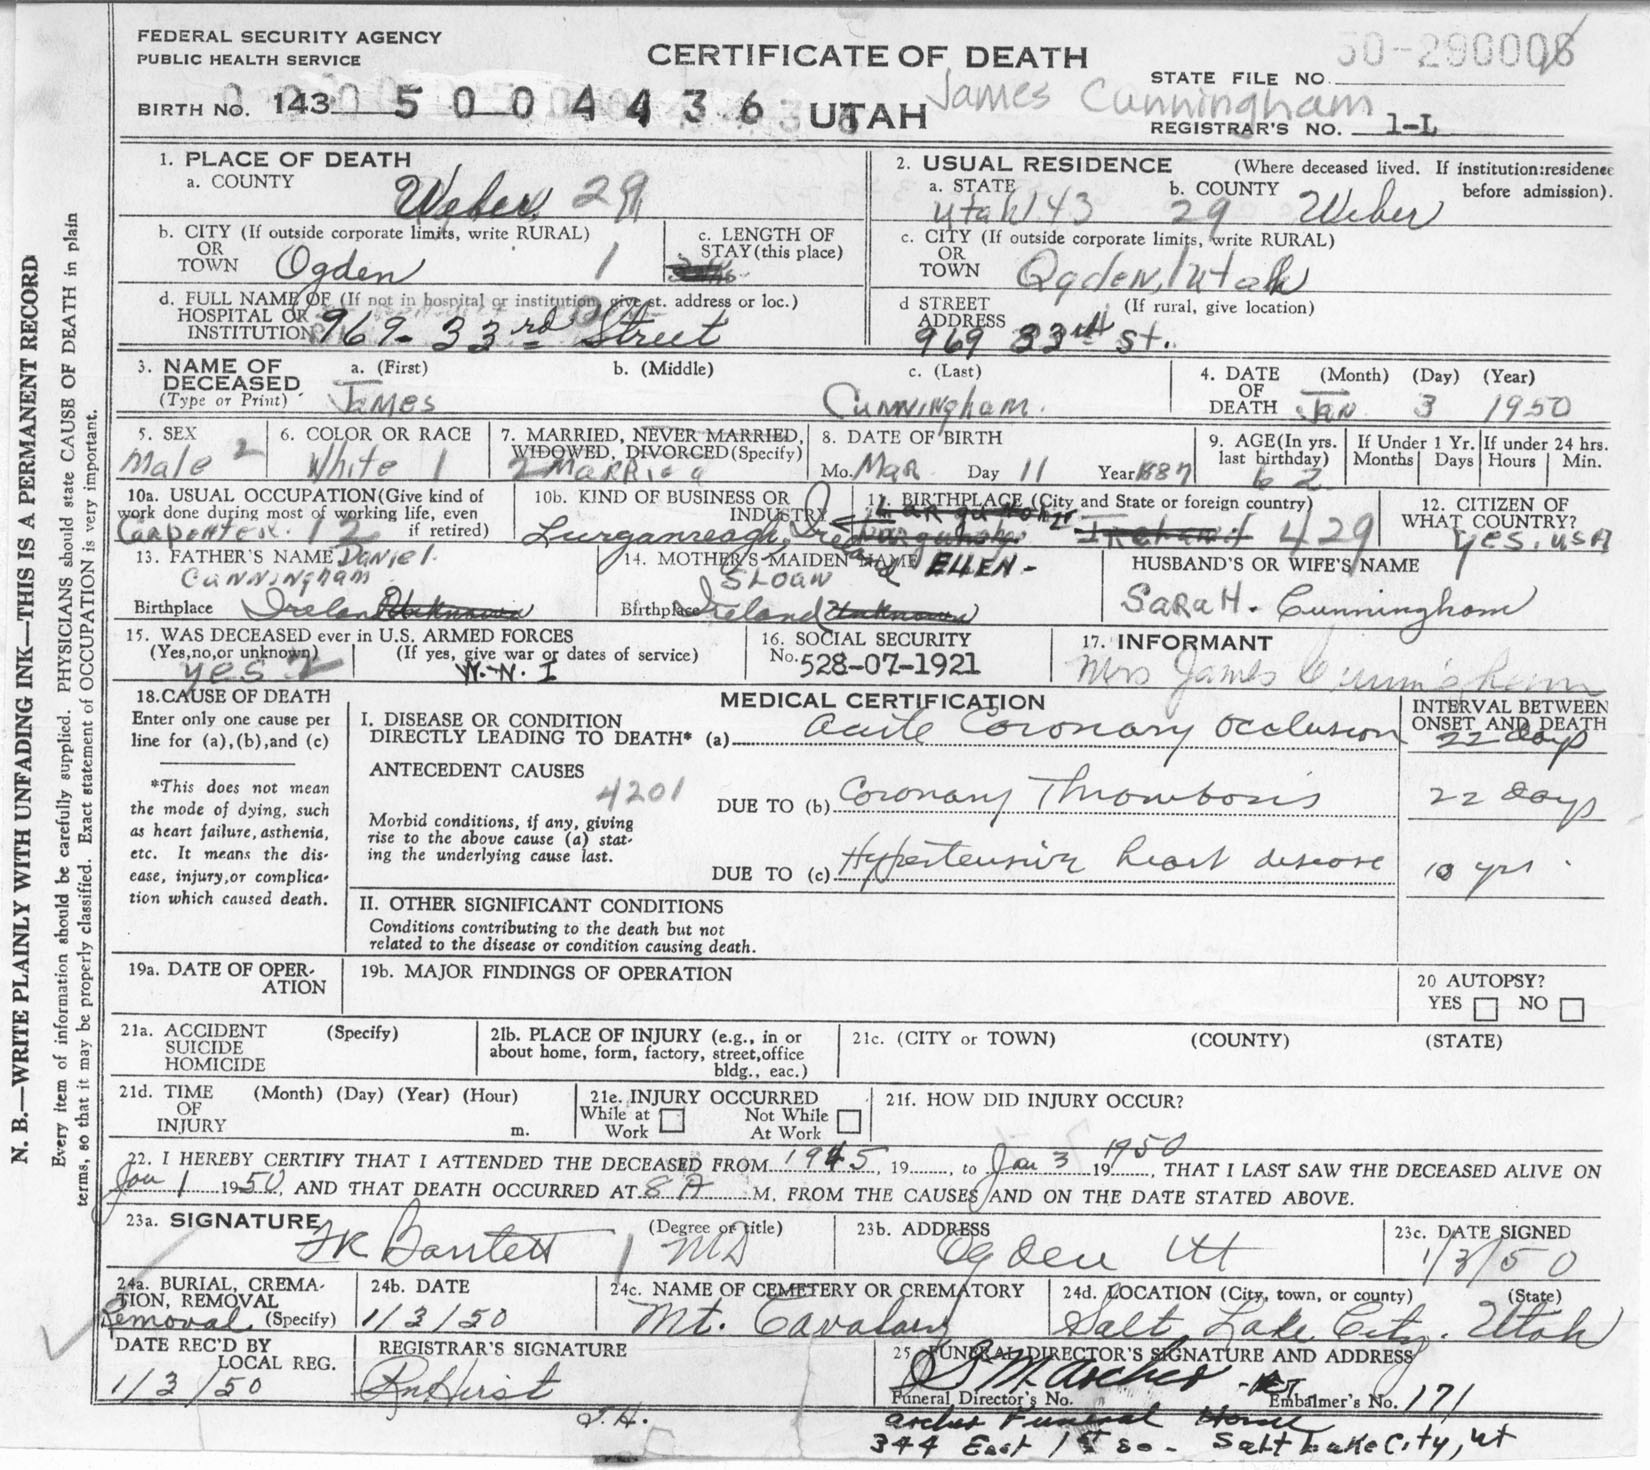 FEDERAL SECURITY AGENCY
PUBLIC HEALTH SERVICE
CERTIFICATE OF DEATH
50-290006
STATE FILE NO.
BIRTH NO. 143 5004436 UTAH
James Cunningham
REGISTRAR'S NO. 1-L
N. B.—WRITE PLAINLY WITH UNFADING INK—THIS IS A PERMANENT RECORD
Every item of information should be carefully supplied. PHYSICIANS should state CAUSE OF DEATH in plain
terms, so that it may be properly classified. Exact statement of OCCUPATION is very important.
1. PLACE OF DEATH
a. COUNTY
Weber 29
2. USUAL RESIDENCE (Where deceased lived. If institution:residence
before admission).
a. STATE b. COUNTY
Utah 143 29 Weber
b. CITY (If outside corporate limits, write RURAL)
OR
TOWN Ogden 1
c. LENGTH OF
STAY (this place)
c. CITY (If outside corporate limits, write RURAL)
OR
TOWN Ogden, Utah
d. FULL NAME OF (If not in hospital or institution, give st. address or loc.)
HOSPITAL OR
INSTITUTION 969- 33rd Street
d STREET (If rural, give location)
ADDRESS
969 33rd St.
3. NAME OF a. (First) b. (Middle) c. (Last)
DECEASED
(Type or Print) James Cunningham.
4. DATE (Month) (Day) (Year)
OF
DEATH Jan 3 1950
5. SEX
Male 2
6. COLOR OR RACE
White 1
7. MARRIED, NEVER MARRIED,
WIDOWED, DIVORCED (Specify)
2 Married
8. DATE OF BIRTH
Mo. Mar Day 11 Year 1887
9. AGE (In yrs.
last birthday)
62
If Under 1 Yr.
Months Days
If under 24 hrs.
Hours Min.
10a. USUAL OCCUPATION (Give kind of
work done during most of working life, even
if retired)
Carpenter. 12
10b. KIND OF BUSINESS OR
INDUSTRY
Lurganreagh, Ireland
11. BIRTHPLACE (City and State or foreign country)
Ireland 429
12. CITIZEN OF
WHAT COUNTRY?
Yes. USA
13. FATHER'S NAME Daniel.
Cunningham
Birthplace Ireland Unknown
14. MOTHER'S MAIDEN NAME ELLEN-
SLOAN
Birthplace Ireland Unknown
HUSBAND'S OR WIFE'S NAME
Sarah. Cunningham
15. WAS DECEASED ever in U.S. ARMED FORCES
(Yes, no, or unknown) (If yes, give war or dates of service)
yes 2 W.W. I
16. SOCIAL SECURITY
No. 528-07-1921
17. INFORMANT
Mrs James Cunningham
18. CAUSE OF DEATH
Enter only one cause per
line for (a), (b), and (c)
*This does not mean
the mode of dying, such
as heart failure, asthenia,
etc. It means the dis-
ease, injury, or complica-
tion which caused death.
MEDICAL CERTIFICATION
INTERVAL BETWEEN
ONSET AND DEATH
I. DISEASE OR CONDITION
DIRECTLY LEADING TO DEATH* (a) Acute Coronary Occlusion 22 days
ANTECEDENT CAUSES
4201
DUE TO (b) Coronary Thrombosis 22 days
Morbid conditions, if any, giving
rise to the above cause (a) stat-
ing the underlying cause last.
DUE TO (c) Hypertensive heart disease 10 yrs
II. OTHER SIGNIFICANT CONDITIONS
Conditions contributing to the death but not
related to the disease or condition causing death.
19a. DATE OF OPER-
ATION
19b. MAJOR FINDINGS OF OPERATION
20 AUTOPSY?
YES NO
21a. ACCIDENT (Specify)
SUICIDE
HOMICIDE
21b. PLACE OF INJURY (e.g., in or
about home, form, factory, street, office
bldg., eac.)
21c. (CITY or TOWN) (COUNTY) (STATE)
21d. TIME (Month) (Day) (Year) (Hour)
OF
INJURY m.
21e. INJURY OCCURRED
While at Work Not While At Work
21f. HOW DID INJURY OCCUR?
22. I HEREBY CERTIFY THAT I ATTENDED THE DECEASED FROM 1945, 19, to Jan 3 19 1950, THAT I LAST SAW THE DECEASED ALIVE ON
Jan 1 1950, AND THAT DEATH OCCURRED AT 8 A M. FROM THE CAUSES AND ON THE DATE STATED ABOVE.
23a. SIGNATURE (Degree or title)
Bartlett MD
23b. ADDRESS
Ogden Ut
23c. DATE SIGNED
1/3/50
24a. BURIAL, CREMA-
TION, REMOVAL
Removal (Specify)
24b. DATE
1/3/50
24c. NAME OF CEMETERY OR CREMATORY
Mt. Cavalary
24d. LOCATION (City, town, or county) (State)
Salt Lake City. Utah
DATE REC'D BY
LOCAL REG.
1/3/50
REGISTRAR'S SIGNATURE
Hirst
25 FUNERAL DIRECTOR'S SIGNATURE AND ADDRESS
S M. Archer
Funeral Director's No. Embalmer's No. 171
J.H.
Archer Funeral Home
344 East 1st So- Salt Lake City, Ut